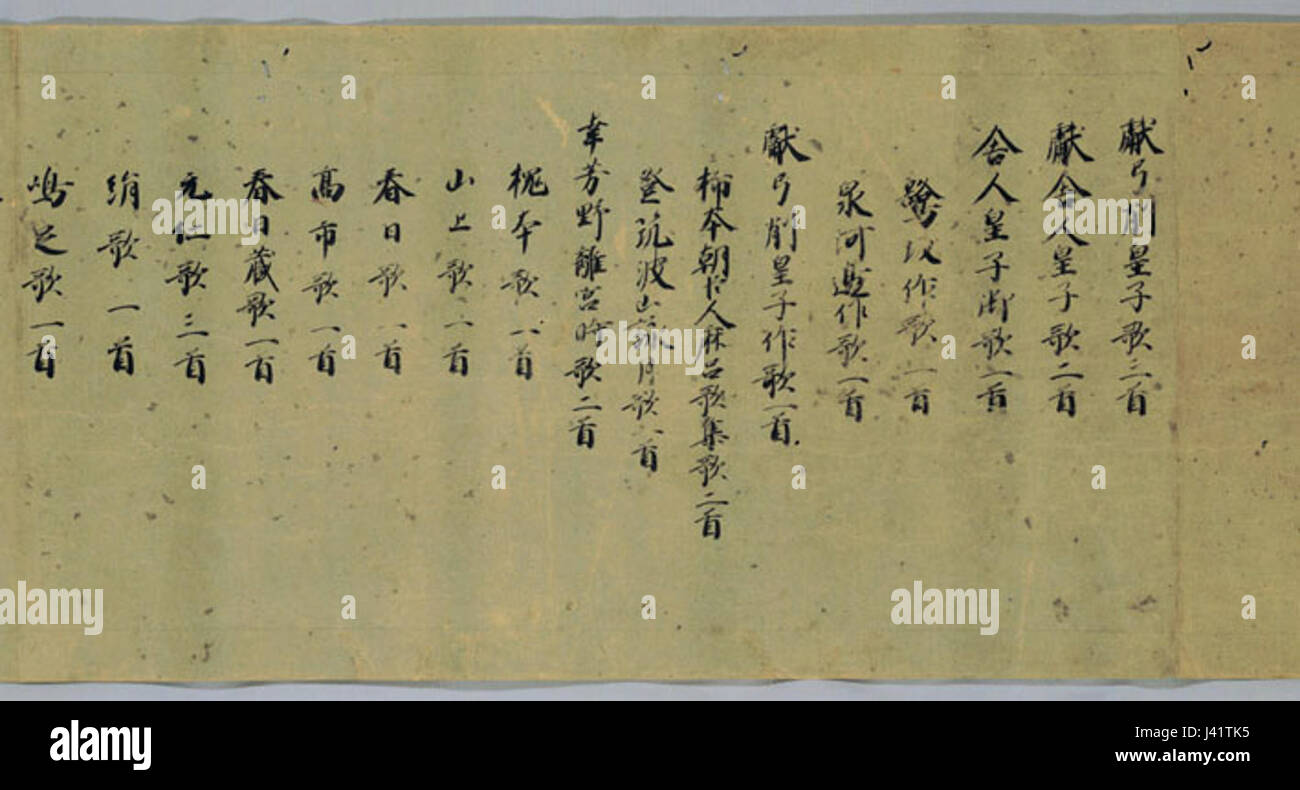 獻弓削皇子歌三首
獻舎人皇子歌二首
舎人皇子御歌一首
鷺坂作歌一首
泉河邊作歌一首
獻弓削皇子作歌一首
柿本朝臣人麻呂歌集歌二首
登筑波山詠月歌一首
幸芳野離宮時歌二首
槐本歌一首
山上歌一首
春日歌一首
高市歌一首
春日蔵歌一首
元仁歌三首
絹歌一首
嶋足歌一首
a a a a
alamy
a a a
a a
alamy alamy
alamy
Image ID: J41TK5
www.alamy.com